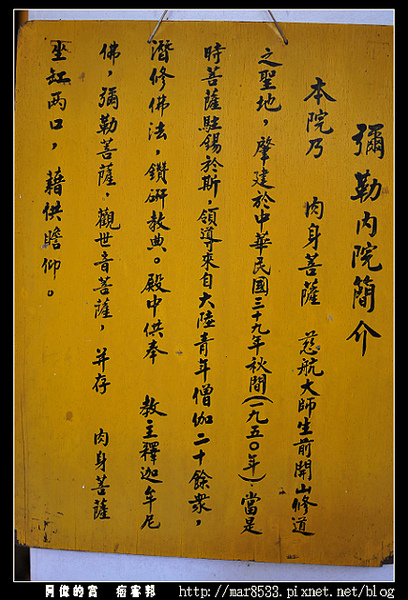 彌勒內院簡介
本院乃 肉身菩薩 慈航大師生前開山修道
之聖地，肇建於中華民國三十九年秋間(一九五〇年)當是
時菩薩駐錫於斯，領導來自大陸青年僧伽二十餘眾，
潛修佛法，鑽研教典。殿中供奉 教主釋迦牟尼
佛，彌勒菩薩，觀世音菩薩，並存 肉身菩薩
坐缸兩口，藉供瞻仰。
阿偉的窩 痞客邦 http://mar8533.pixnet.net/blog